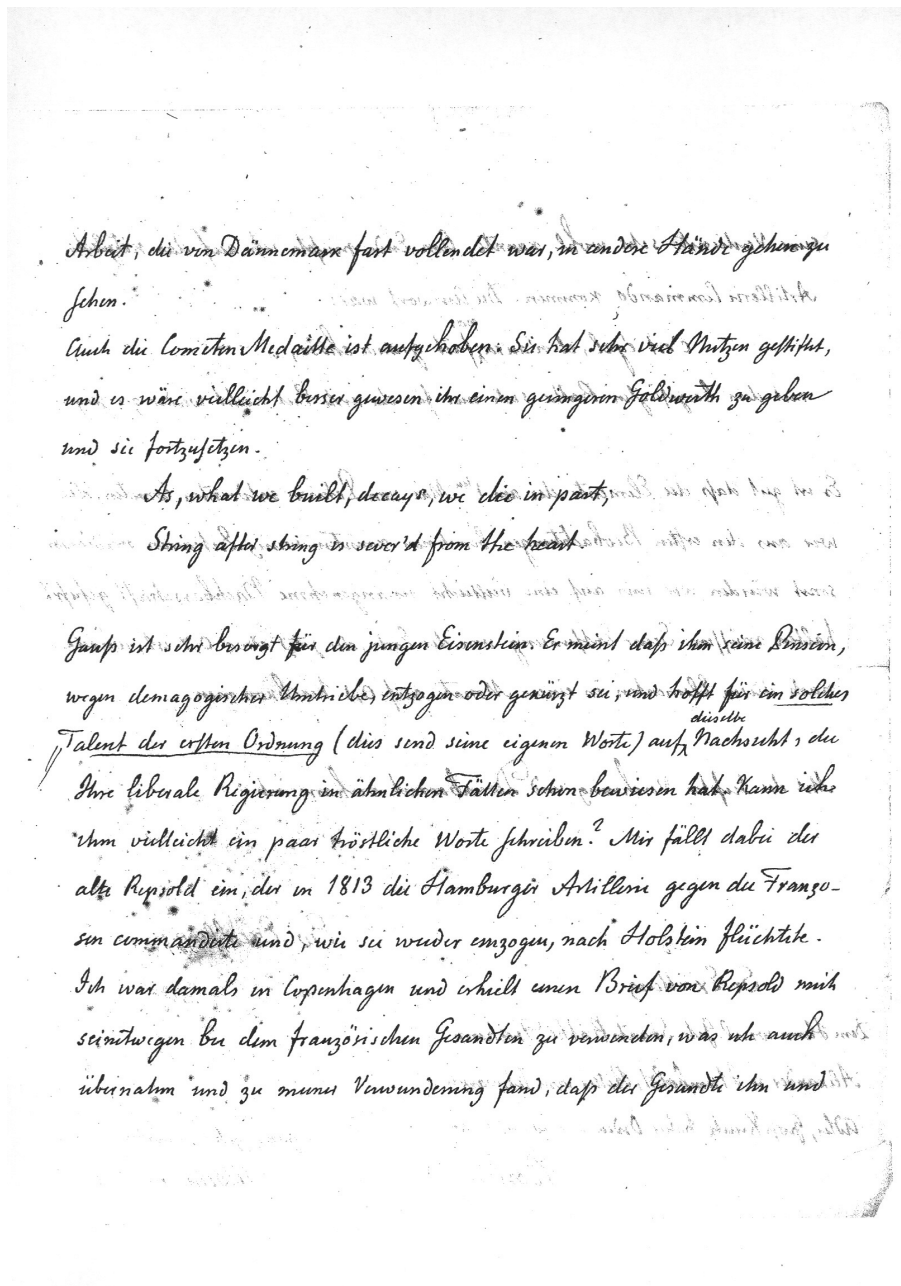 Arbeit, die von Dännemark fast vollendet war, in andere Hände gehen zu
sehen.
Auch die Cometen Medaille ist aufgehoben. Sie hat sehr viel Nutzen gestiftet,
und es wäre vielleicht besser gewesen ihr einen geringeren Goldwerth zu geben
und sie fortzusetzen.
As, what we built, decays, we die in part,
String after string is sever'd from the heart
Gauß ist sehr besorgt für den jungen Eisenstein. Er meint daß ihm seine Pension,
wegen demagogischer Umtriebe, entzogen oder gekürzt sei, und hofft für ein solches
Talent der ersten Ordnung (dies send seine eigenen Worte) auf dieselbe Nachsicht, die
Ihre liberale Regierung in ähnlichen Fällen schon bewiesen hat. Kann ich
ihm vielleicht ein paar tröstliche Worte schreiben? Mir fällt dabei der
alte Repsold ein, der in 1813 die Hamburger Artillerie gegen die Franzo-
sen commandirte und, wie sie wieder einzogen, nach Holstein flüchtete.
Ich war damals in Copenhagen und erhielt einen Brief von Repsold mich
seinetwegen bei dem französischen Gesandten zu verwenden, was ich auch
übernahm und zu meiner Verwunderung fand, daß der Gesandte ihn und